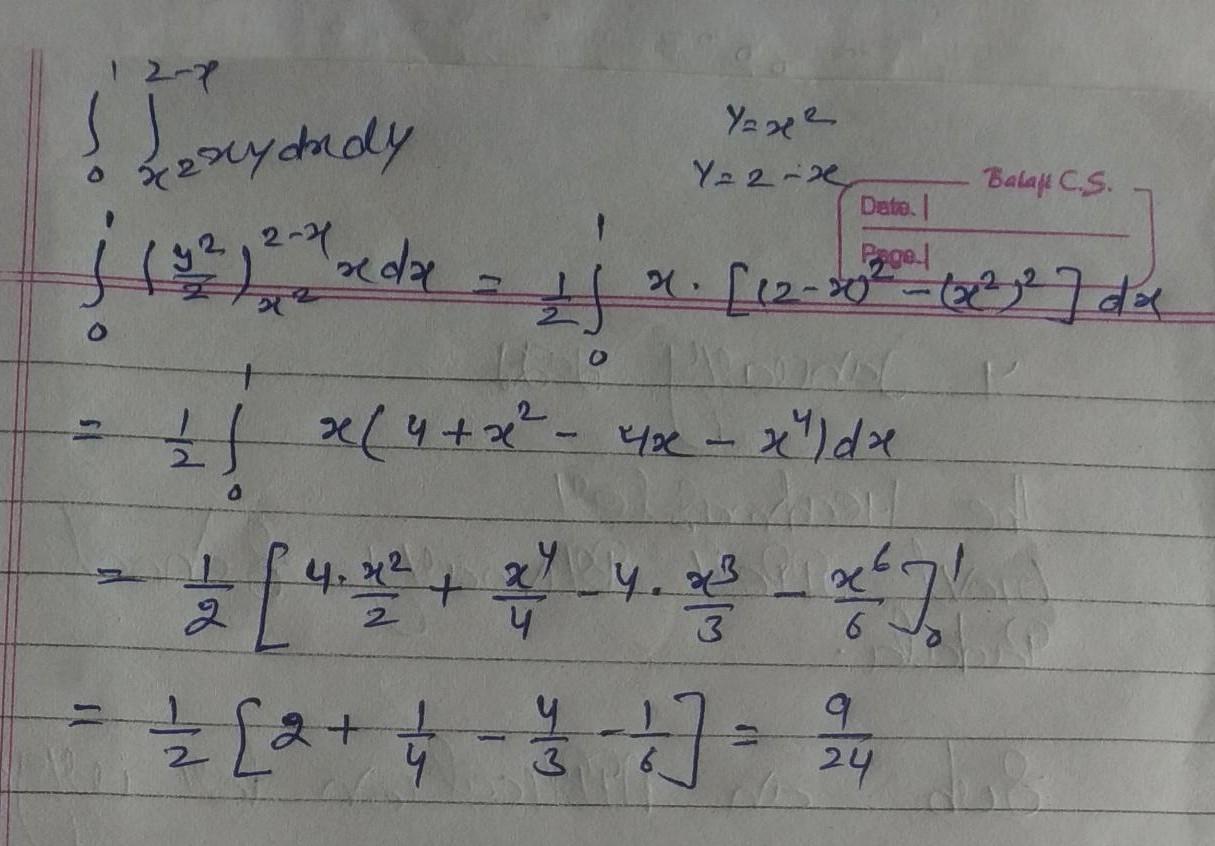 ∫₀¹ ∫_{x²}^{2-x} xy dx dy
y = x²
y = 2 - x
Balaji C.S.
Date.
Page.
∫₀¹ (y²/2)_{x²}^{2-x} x dx = 1/2 ∫₀¹ x · [(2-x)² - (x²)²] dx
= 1/2 ∫₀¹ x(4 + x² - 4x - x⁴) dx
= 1/2 [4 · x²/2 + x⁴/4 - 4 · x³/3 - x⁶/6]₀¹
= 1/2 [2 + 1/4 - 4/3 - 1/6] = 9/24